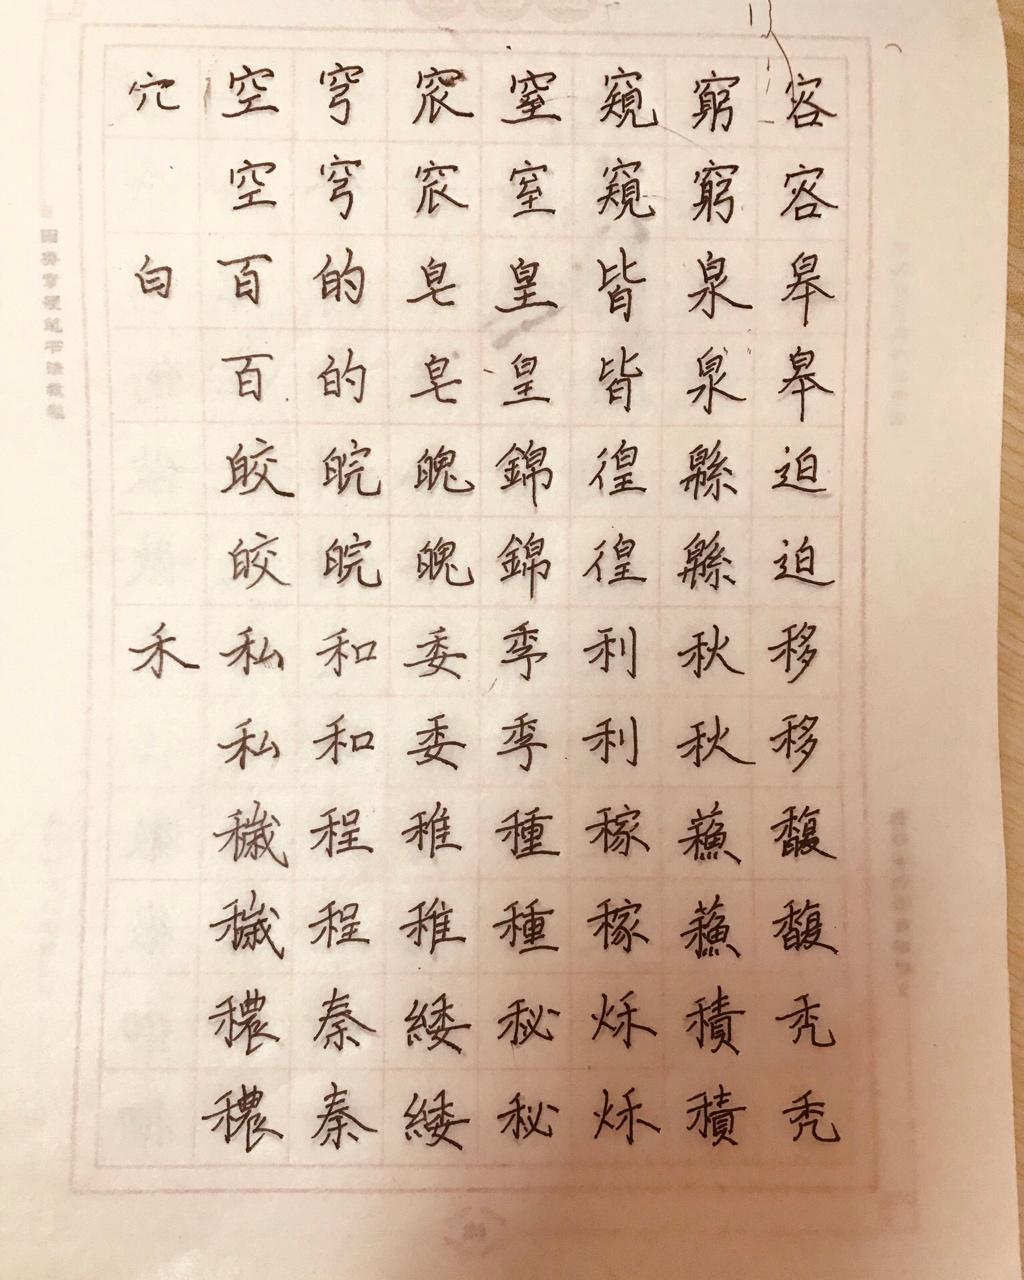 穴 空 穹 窊 窒 窺 窮 容
空 穹 窊 窒 窺 窮 容
白 百 的 皂 皇 皆 泉 皋
百 的 皂 皇 皆 泉 皋
皎 皖 魄 錦 徨 緜 迫
皎 皖 魄 錦 徨 緜 迫
禾 私 和 委 季 利 秋 移
私 和 委 季 利 秋 移
穢 程 稚 種 稼 蘓 馥
穢 程 稚 種 稼 蘓 馥
穠 秦 緌 秘 烁 積 秃
穠 秦 緌 秘 烁 積 秃